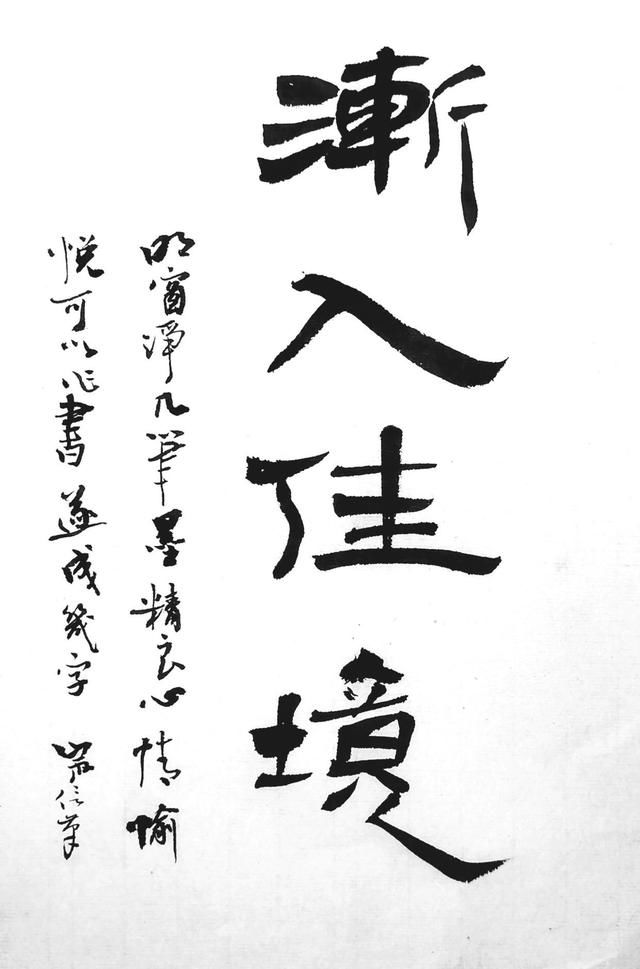 漸入佳境
明窗淨几筆墨精良心情愉
悅可以作書遂成幾字 信筆